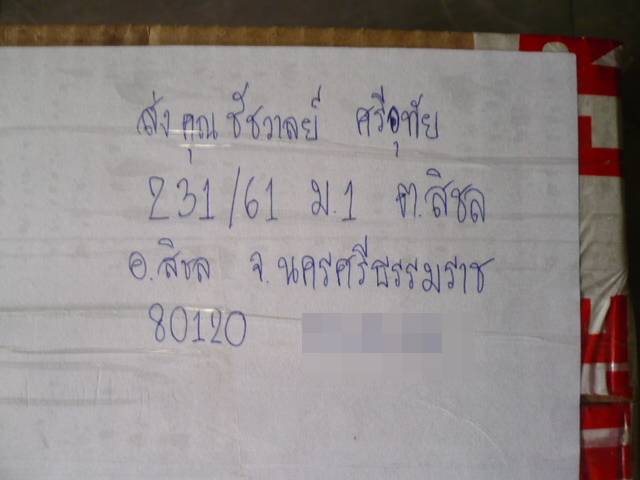 ส่ง คุณ ชัชวาลย์ ศรีอุทัย
231/61 ม.1 ต.สิชล
อ.สิชล จ.นครศรีธรรมราช
80120